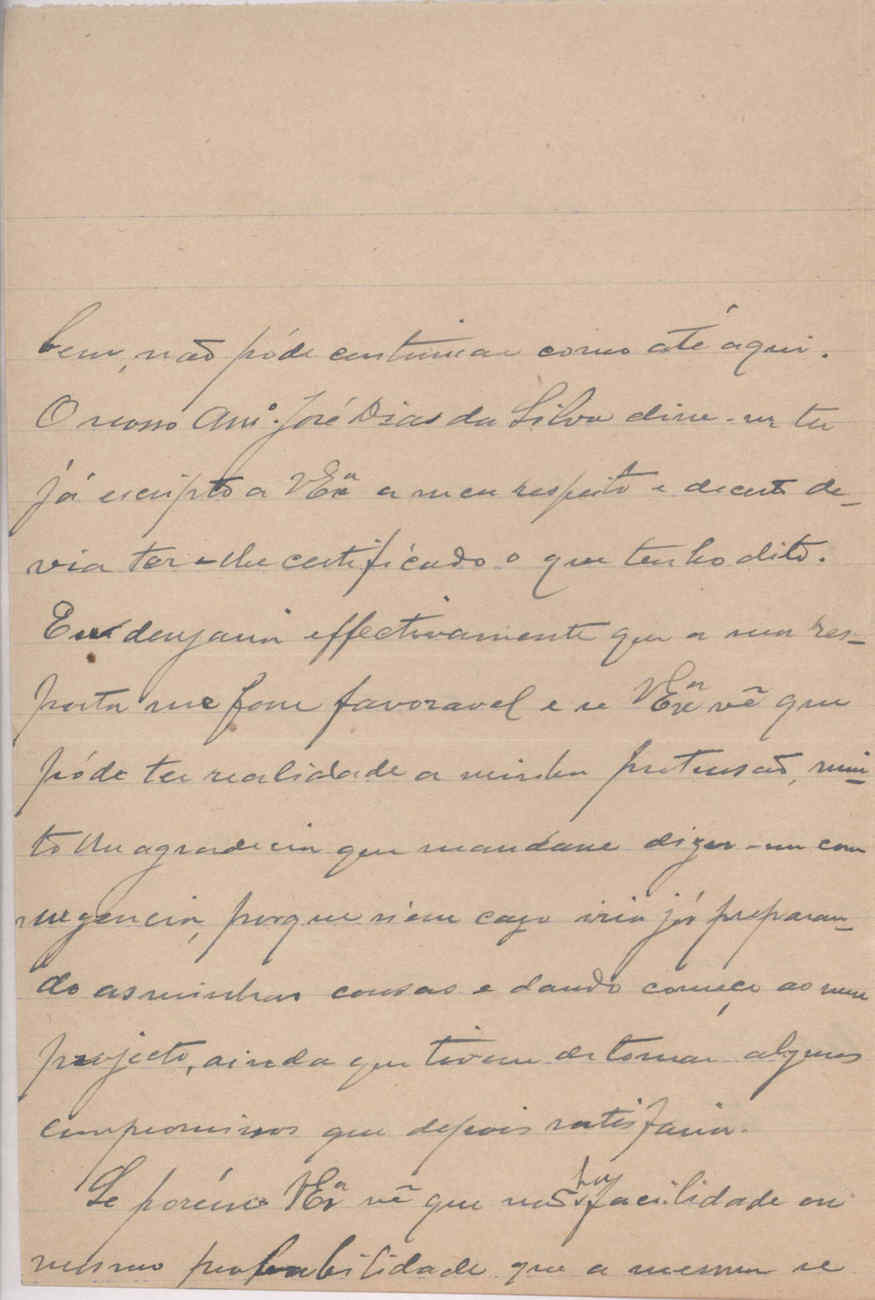 bem, não póde continuar como até aqui.
O nosso Amº. José Dias da Silva disse-me ter
já escripto a VExª a meu respeito e decerto de-
via ter-lhe certificado o que tenho dito.
Eu desejaria effectivamente que a sua res-
posta me fosse favoravel e se VExª vê que
póde ter realidade a minha pretensão, mui-
to lhe agradecia que mandasse dizer-me com
urgencia, porque n'esse caso iria já preparan-
do as minhas cousas e dando começo ao meu
projecto, ainda que tivesse de tomar alguns
compromissos que depois satisfaria.
Se porém VExª vê que não ha facilidade ou
mesmo probabilidade que a mesma se